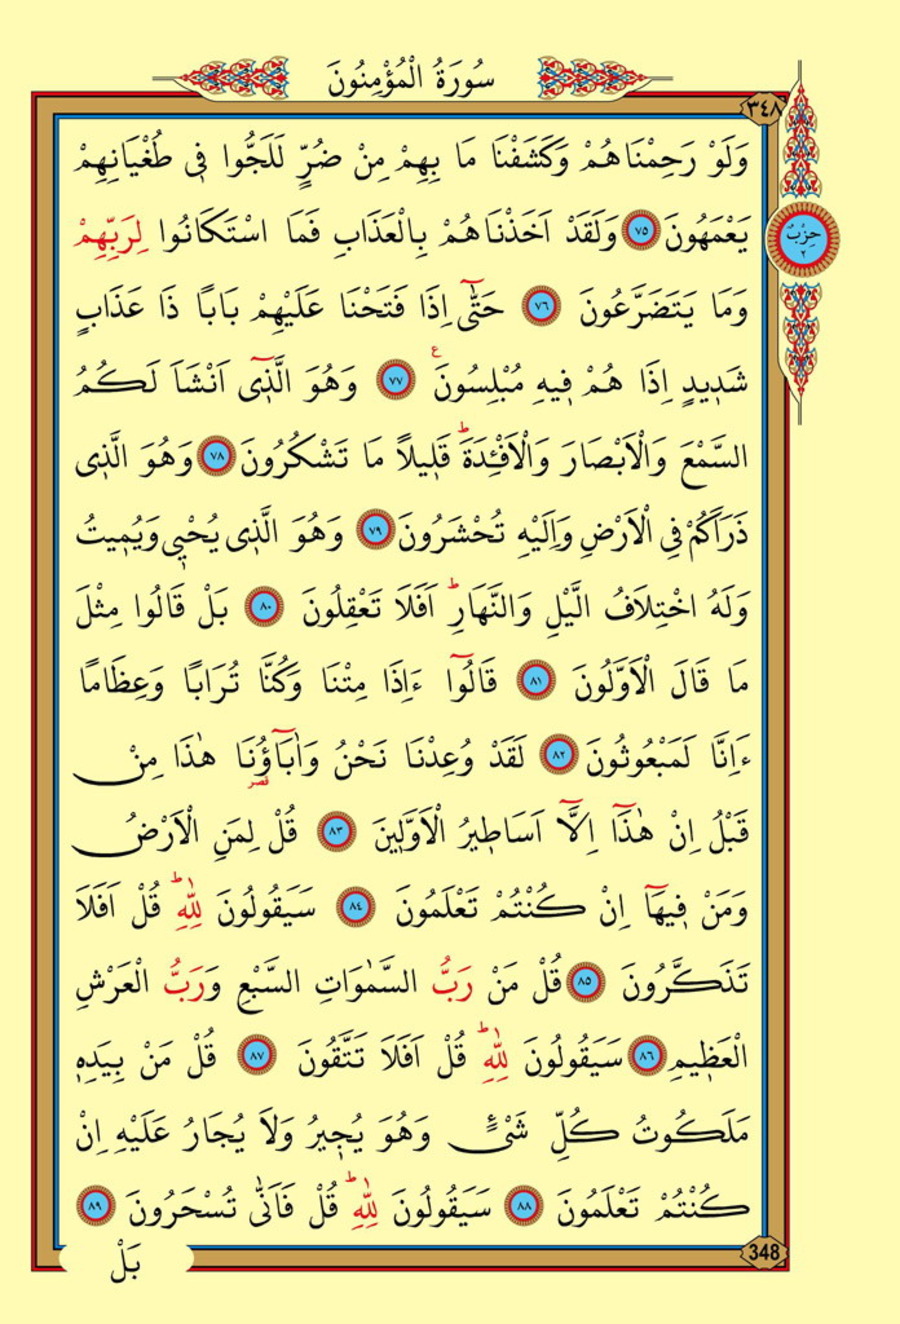 سُورَةُ الْمُؤْمِنُونَ
٣٤٨
وَلَوْ رَحِمْنَاهُمْ وَكَشَفْنَا مَا بِهِمْ مِنْ ضُرٍّ لَلَجُّوا فٖي طُغْيَانِهِمْ
يَعْمَهُونَ ٧٥ وَلَقَدْ اَخَذْنَاهُمْ بِالْعَذَابِ فَمَا اسْتَكَانُوا لِرَبِّهِمْ
حِزْبٌ
٢
وَمَا يَتَضَرَّعُونَ ٧٦ حَتّٰٓى اِذَا فَتَحْنَا عَلَيْهِمْ بَابًا ذَا عَذَابٍ
شَدٖيدٍ اِذَا هُمْ فٖيهِ مُبْلِسُونَ ع ٧٧ وَهُوَ الَّذٖٓي اَنْشَاَ لَكُمُ
السَّمْعَ وَالْاَبْصَارَ وَالْاَفْـِٔدَةَ ط قَلٖيلاً مَا تَشْكُرُونَ ٧٨ وَهُوَ الَّذٖي
ذَرَاَكُمْ فِي الْاَرْضِ وَاِلَيْهِ تُحْشَرُونَ ٧٩ وَهُوَ الَّذٖي يُحْيٖي وَيُمٖيتُ
وَلَهُ اخْتِلَافُ الَّيْلِ وَالنَّهَارِ ط اَفَلَا تَعْقِلُونَ ٨٠ بَلْ قَالُوا مِثْلَ
مَا قَالَ الْاَوَّلُونَ ٨١ قَالُٓوا ءَاِذَا مِتْنَا وَكُنَّا تُرَابًا وَعِظَامًا
ءَاِنَّا لَمَبْعُوثُونَ ٨٢ لَقَدْ وُعِدْنَا نَحْنُ وَاٰبَٓاؤُ۬نَا قصر هٰذَا مِنْ
قَبْلُ اِنْ هٰذَٓا اِلَّٓا اَسَاطٖيرُ الْاَوَّلٖينَ ٨٣ قُلْ لِمَنِ الْاَرْضُ
وَمَنْ فٖيهَٓا اِنْ كُنْتُمْ تَعْلَمُونَ ٨٤ سَيَقُولُونَ لِلّٰهِ ط قُلْ اَفَلَا
تَذَكَّرُونَ ٨٥ قُلْ مَنْ رَبُّ السَّمٰوَاتِ السَّبْعِ وَرَبُّ الْعَرْشِ
الْعَظٖيمِ ٨٦ سَيَقُولُونَ لِلّٰهِ ط قُلْ اَفَلَا تَتَّقُونَ ٨٧ قُلْ مَنْ بِيَدِهٖ
مَلَكُوتُ كُلِّ شَيْءٍ وَهُوَ يُجٖيرُ وَلَا يُجَارُ عَلَيْهِ اِنْ
كُنْتُمْ تَعْلَمُونَ ٨٨ سَيَقُولُونَ لِلّٰهِ ط قُلْ فَاَنّٰى تُسْحَرُونَ ٨٩
348
بَلْ